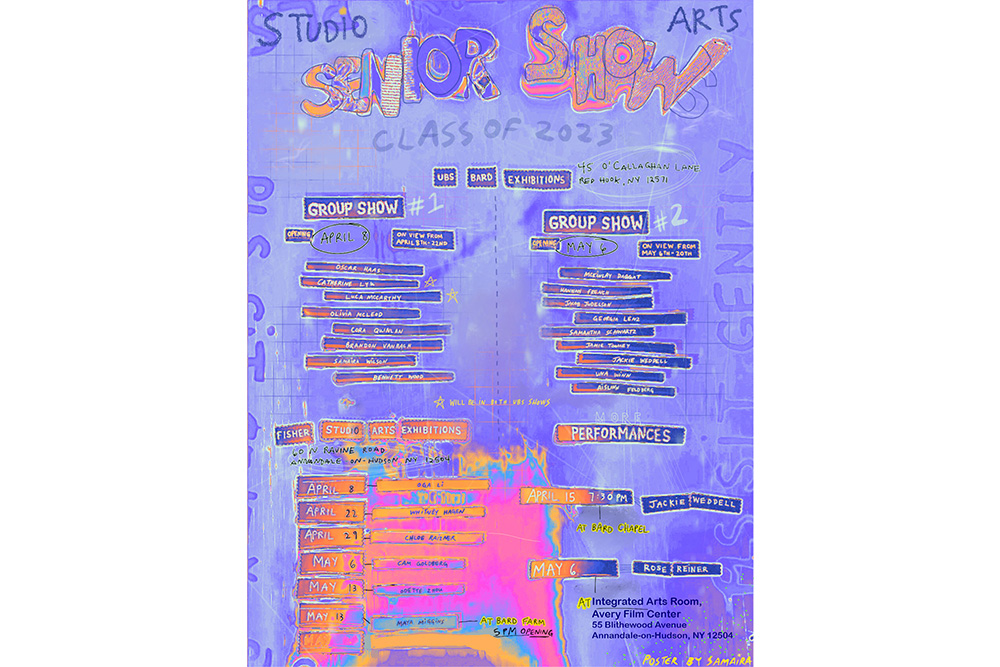 STUDIO ARTS
SENIOR SHOWS
CLASS OF 2023
UBS BARD EXHIBITIONS
45 O'CALLAGHAN LANE
RED HOOK, NY 12571
GROUP SHOW #1
OPENING APRIL 8
ON VIEW FROM
APRIL 8TH-22ND
OSCAR HAAS
CATHERINE LYU
LUCA MCCARTHY
OLIVIA MCLEOD
CORA QUINLAN
BRANDON
SAMAIRA WILSON
BENNETT WOOD
GROUP SHOW #2
OPENING MAY 6
ON VIEW FROM
MAY 6TH-20TH
MCKINLAY DAGGAT
HANNAH FRENCH
JUDELSON
GEORGIA LENZ
SAMANTHA SCHWARTZ
JAMIE TOWNEY
JACKIE WEDDELL
UMA WINN
AISLINN FELDBERG
WILL BE IN BOTH UBS SHOWS
FISHER STUDIO ARTS EXHIBITIONS
60 N RAVINE ROAD
ANNANDALE-ON-HUDSON NY 12504
APRIL 8 OGA LI
APRIL 22 WHITNEY HAGEN
APRIL 29 CHLOE RAIZNER
MAY 6 CAM GOLDBERG
MAY 13 ODETTE
MAY 13 MAYA HIGGINS
AT BARD FARM
5PM OPENING
MORE
PERFORMANCES
APRIL 15 7:30 PM JACKIE WEDDELL
AT BARD CHAPEL
MAY 6 ROSE REINER
AT Integrated Arts Room,
Avery Film Center
55 Blithewood Avenue
Annandale-on-Hudson, NY 12504
POSTER BY SAMAIRA